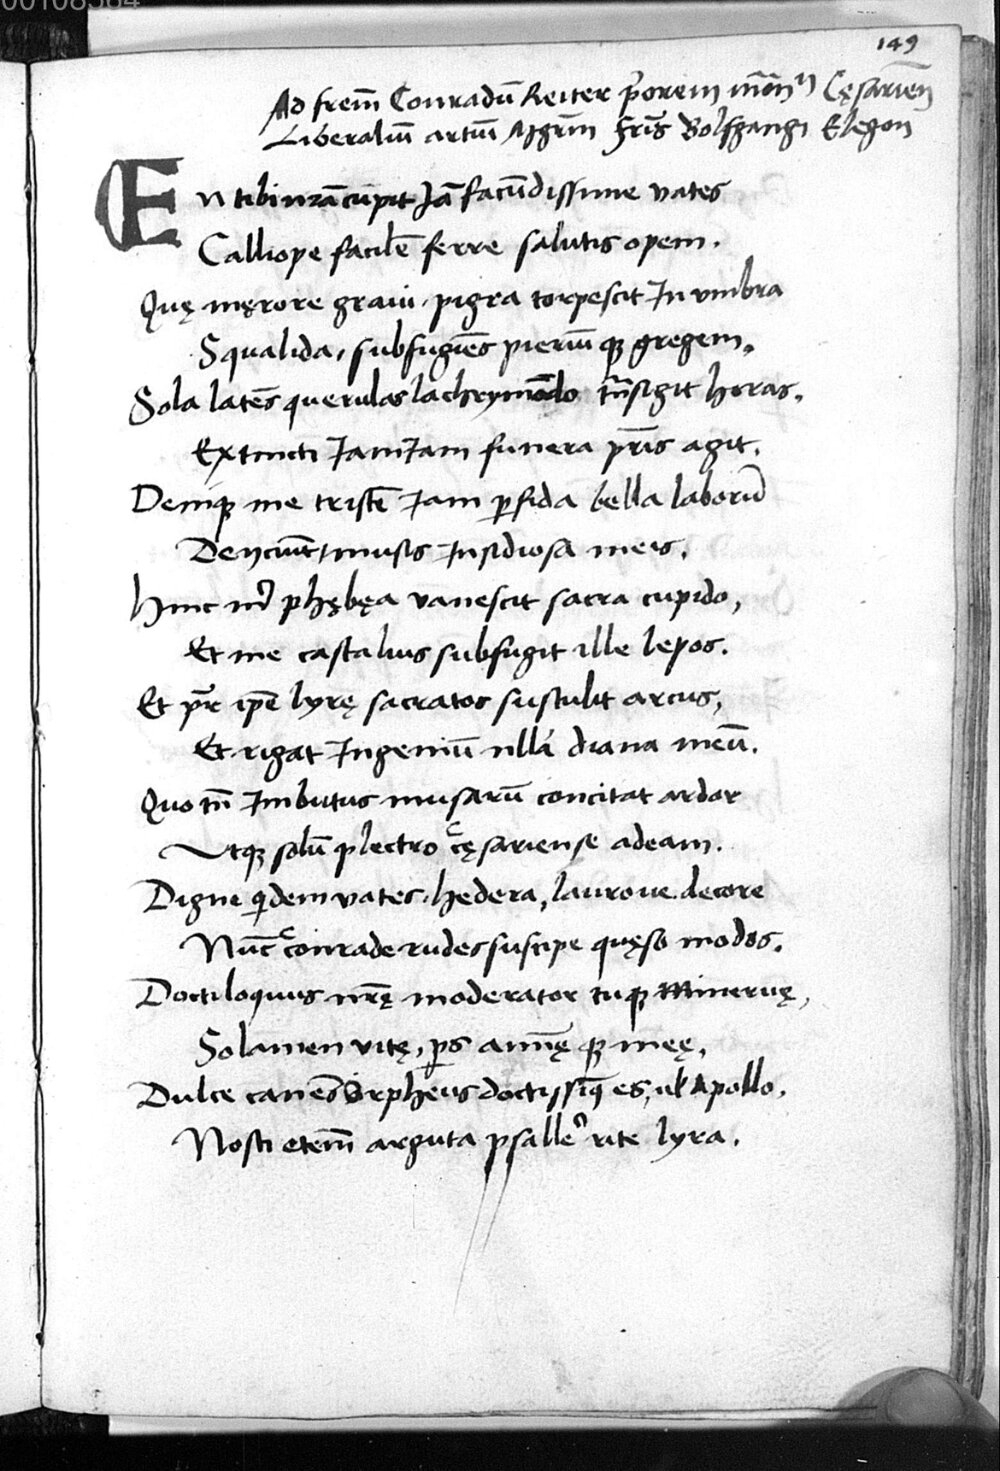 00108564
149
Ad frem̄ Conradū Reiter p̄orem Cęsarien̄
Liberaliū artiū Mgrm̄ fr̄is Bolfgangi Elegon
En tibi nrā cupit Jā facūdissime vates
Calliope facilē ferre salutis opem.
Quę męrore graui pigra torpescit In vmbra
Squalida, subfugiēs pieriūqꝫ gregem.
Sola latēs querulas lachrymādo trāsigit horas.
Extincti JamJam funera pr̄is agit.
Deniqꝫ me tristē Jam ꝑfida bella laborū
Deijciūt, musis Insidiosa meis.
Hinc m̄ phębęa vanescit sacra cupido,
Et me castalius subfugit ille lepos.
Et pr̄ ip̄e lyrę sacratos sustulit arcus,
Et rigat Ingeniū nlla diana meū.
Quo tn̄ Imbutus musarū concitat ardor
Vtqꝫ solū plectro cęsariense adeam.
Digni q̇dem vates, hedera, lauroue decore
Nūc conrade rudes suscipe quęso modos.
Doctiloquus nr̄ę moderator tuqꝫ Minerue,
Solamen vitę, ꝑs animęqꝫ meę,
Dulce canēs Orpheus doctissimꝫ es, vl Apollo.
Nosti etem̄ arguta psallere rite lyra.